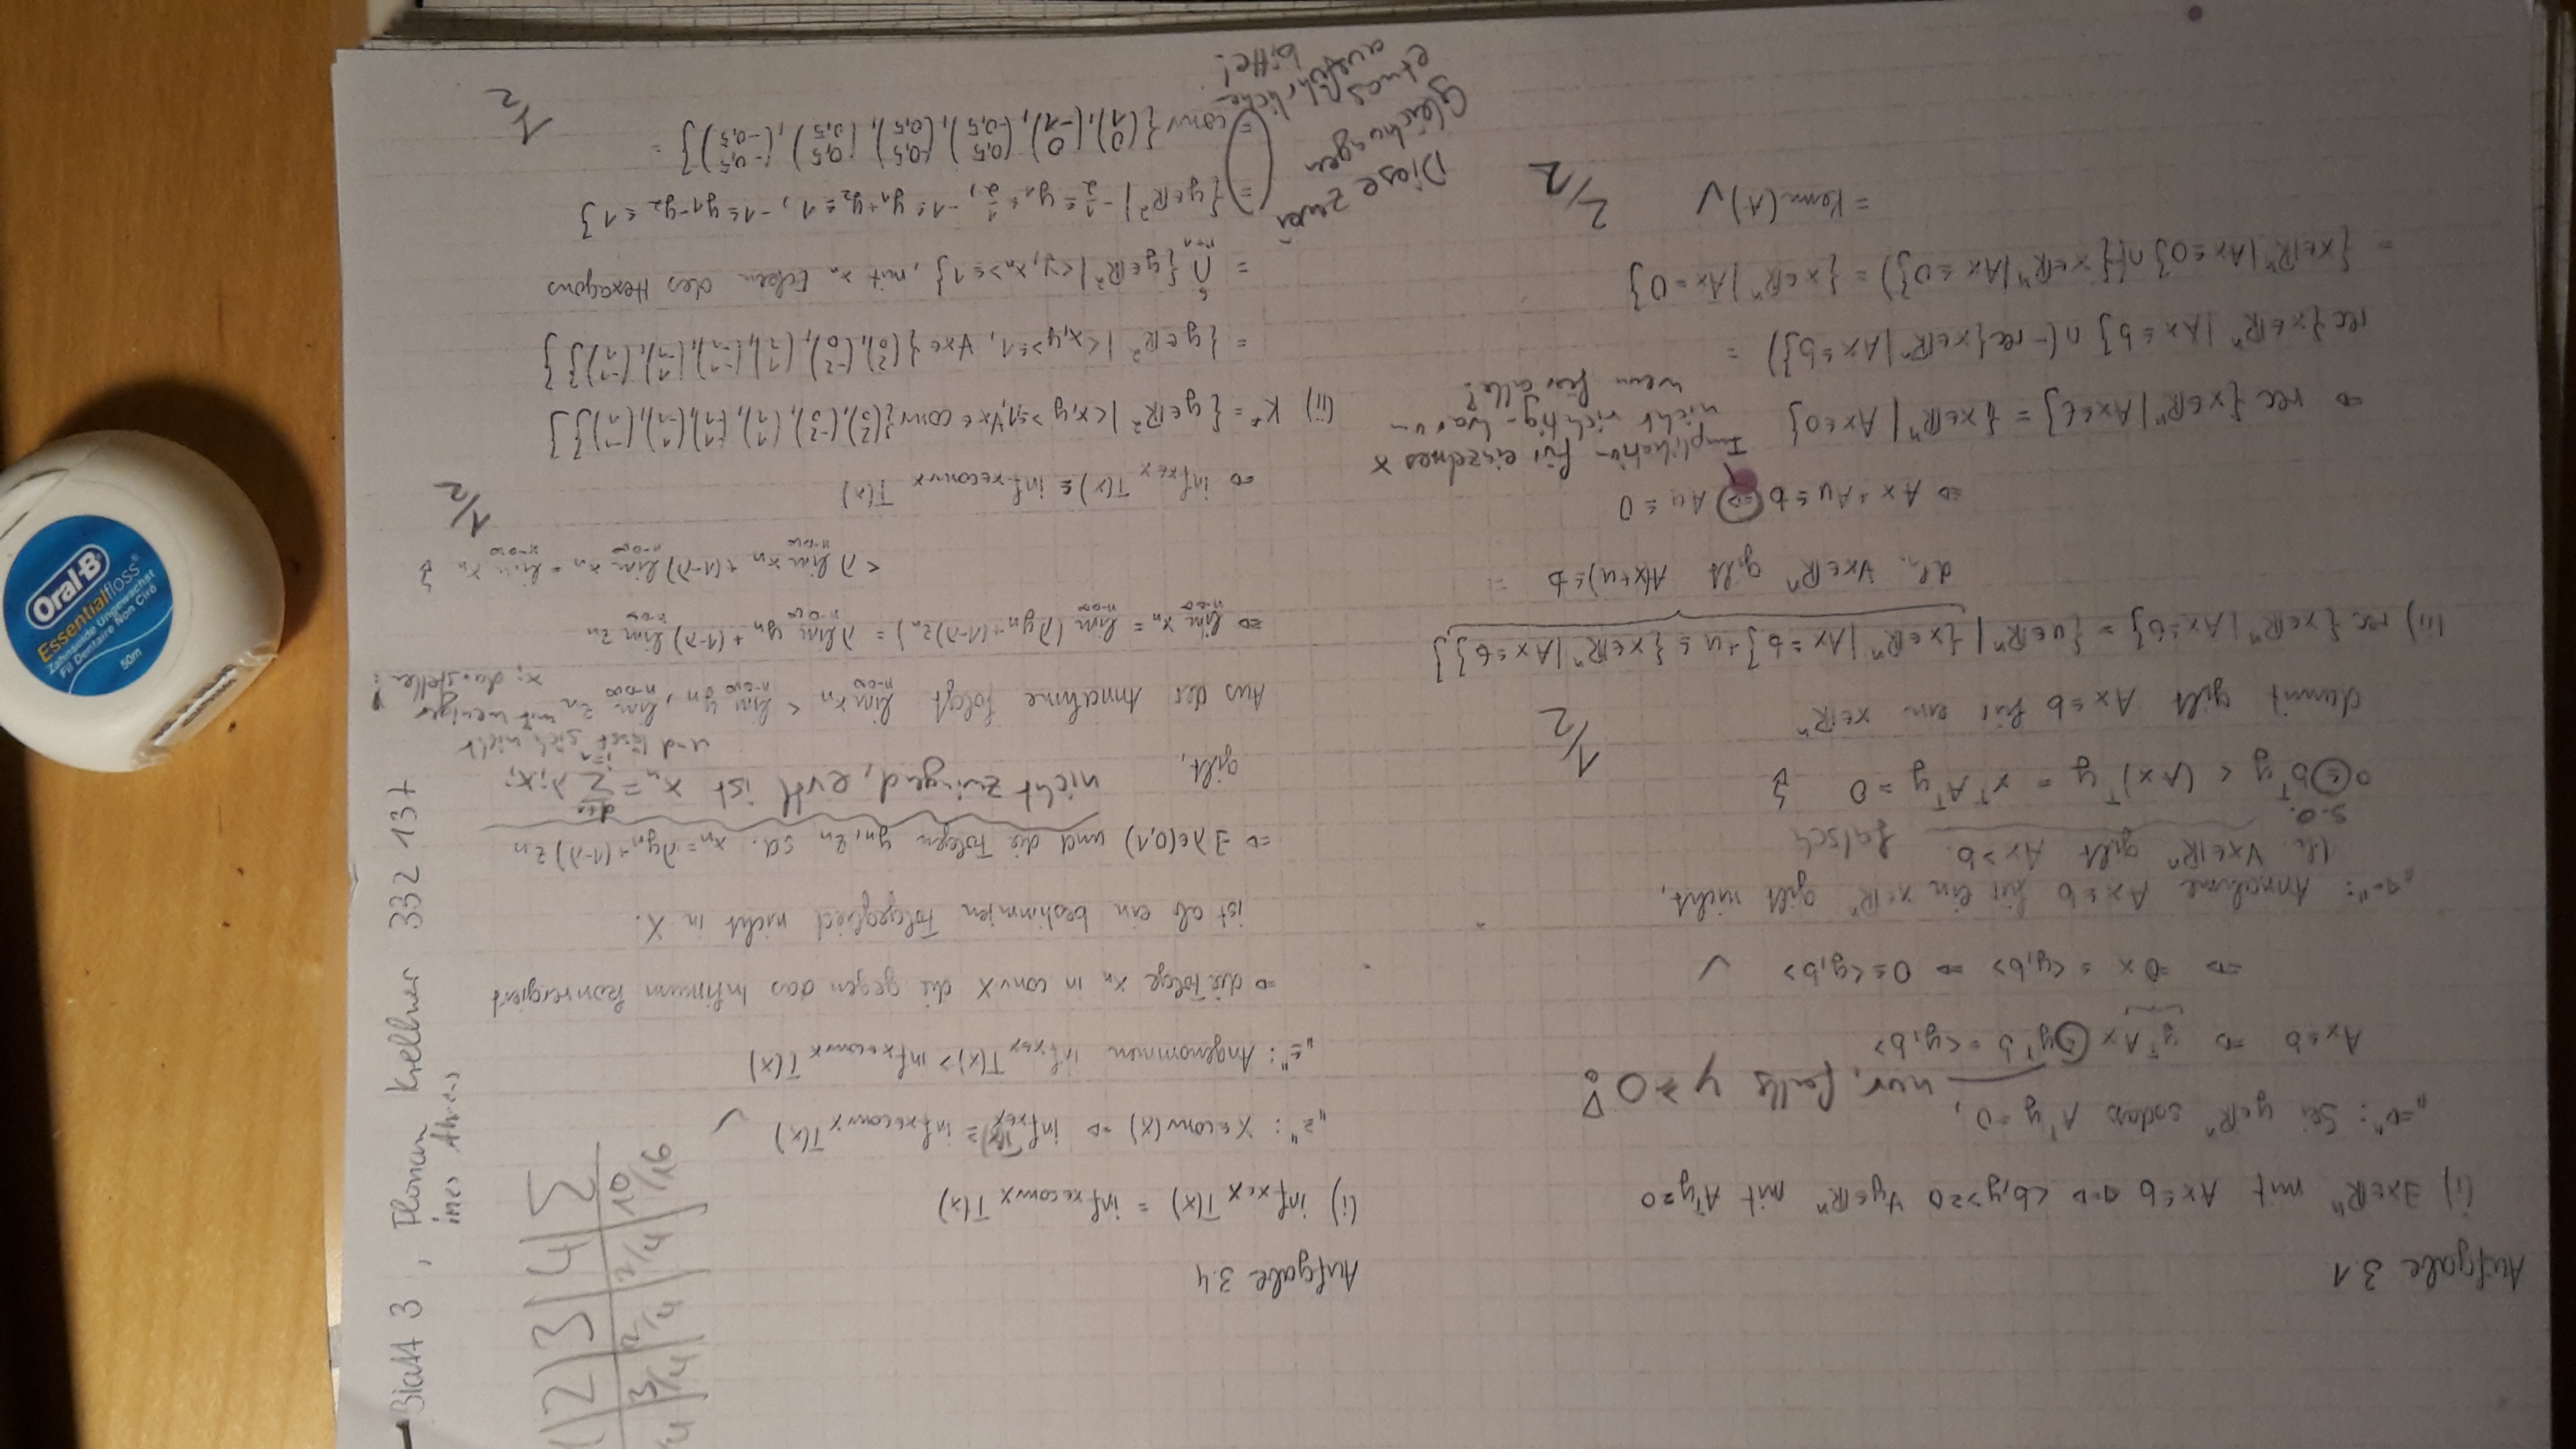 Oral-B
Essentialfloss
Zahnseide Ungewachst
Fil Dentaire Non Ciré
50m
Blatt 3, Florian Krellner 332 137
ines Ahrens
1 | 2 | 3 | 4 | Σ
/4 | 3/4 | 2/4 | 2/4 | 10/16
Aufgabe 3.1
(i) ∃x∈ℝⁿ mit Ax≤b ⇔ <b,y>≥0 ∀y∈ℝⁿ mit Aᵀy=0
"⇒": Sei y∈ℝⁿ sodass Aᵀy=0,
nur, falls y≥0!
Ax≤b ⇒ yᵀAx ≤ yᵀb = <y,b>
⇒ 0x ≤ <y,b> ⇒ 0≤<y,b> ✓
"⇐": Annahme Ax≤b für ein x∈ℝⁿ gilt nicht,
d.h. ∀x∈ℝⁿ gilt Ax>b. falsch
s.o.
0≤bᵀy < (Ax)ᵀy = xᵀAᵀy = 0 ↯
1/2
damit gilt Ax≤b für ein x∈ℝⁿ
(ii) rec{x∈ℝⁿ|Ax≤b} = {u∈ℝⁿ|{x∈ℝⁿ|Ax≤b}+u⊆{x∈ℝⁿ|Ax≤b}}
d.h. ∀x∈ℝⁿ gilt A(x+u)≤b
⇒ Ax+Au≤b ⇒ Au≤0
Implikation für einzelnes x
nicht richtig - warum
wenn für alle?
⇒ rec{x∈ℝⁿ|Ax≤b} = {x∈ℝⁿ|Ax≤0}
rec{x∈ℝⁿ|Ax≤b} ∩ (-rec{x∈ℝⁿ|Ax≤b}) =
= {x∈ℝⁿ|Ax≤0} ∩ ({x∈ℝⁿ|Ax≤0}) = {x∈ℝⁿ|Ax=0}
= Kern(A) ✓
2/2
Aufgabe 3.4
(i) inf x∈X T(x) = inf x∈convX T(x)
"≥": X⊆conv(X) ⇒ inf x∈X T(x) ≥ inf x∈convX T(x) ✓
"≤": Angenommen inf x∈X T(x) > inf x∈convX T(x)
⇒ die Folge xn in convX die gegen das Infimum konvergiert
ist ab ein bestimmten Folgeglied nicht in X.
⇒ ∃λ∈(0,1) und die Folgen yn, zn sd. xn=λyn+(1-λ)zn
gilt,
nicht zwingend, evtl ist xn = Σ i=1 d+1 λi xi
und lässt sich nicht
mit weniger
xi darstellen!
Aus der Annahme folgt lim n→∞ xn < lim n→∞ yn, lim n→∞ zn
⇒ lim n→∞ xn = lim n→∞ (λyn+(1-λ)zn) = λ lim n→∞ yn + (1-λ) lim n→∞ zn
< λ lim n→∞ xn + (1-λ) lim n→∞ xn = lim n→∞ xn ↯
⇒ inf x∈X T(x) ≤ inf x∈convX T(x)
1/2
(ii) K* = {y∈ℝ²|<x,y>≤1, ∀x∈conv{(2 0),(-2 0),(1 1),(-1 1),(1 -1),(-1 -1)}}
= {y∈ℝ²|<x,y>≤1, ∀x∈{(2 0),(-2 0),(1 1),(-1 1),(1 -1),(-1 -1)}}
= ⋂ n=1 6 {y∈ℝ²|<y,xn>≤1}, mit xn Ecken des Hexagons
= {y∈ℝ²|-1/2≤y1≤1/2, -1≤y1+y2≤1, -1≤y1-y2≤1}
= conv{(0 1),(0 -1),(0,5 -0,5),(-0,5 0,5),(0,5 0,5),(-0,5 -0,5)} =
Diese zwei
Gleichungen
etwas ausführlicher
bitte!
1/2